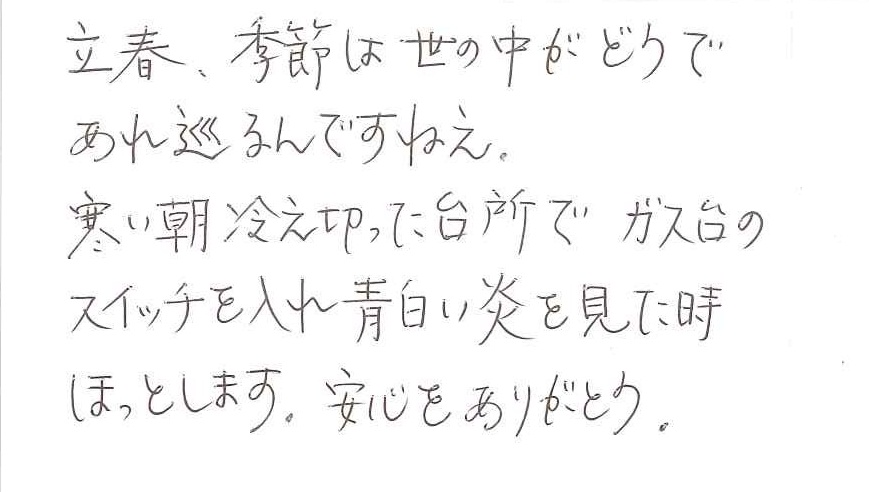 立春、季節は世の中がどうで
あれ巡るんですねえ。
寒い朝冷え切った台所でガス台の
スイッチを入れ青白い炎を見た時
ほっとします。安心をありがとう。